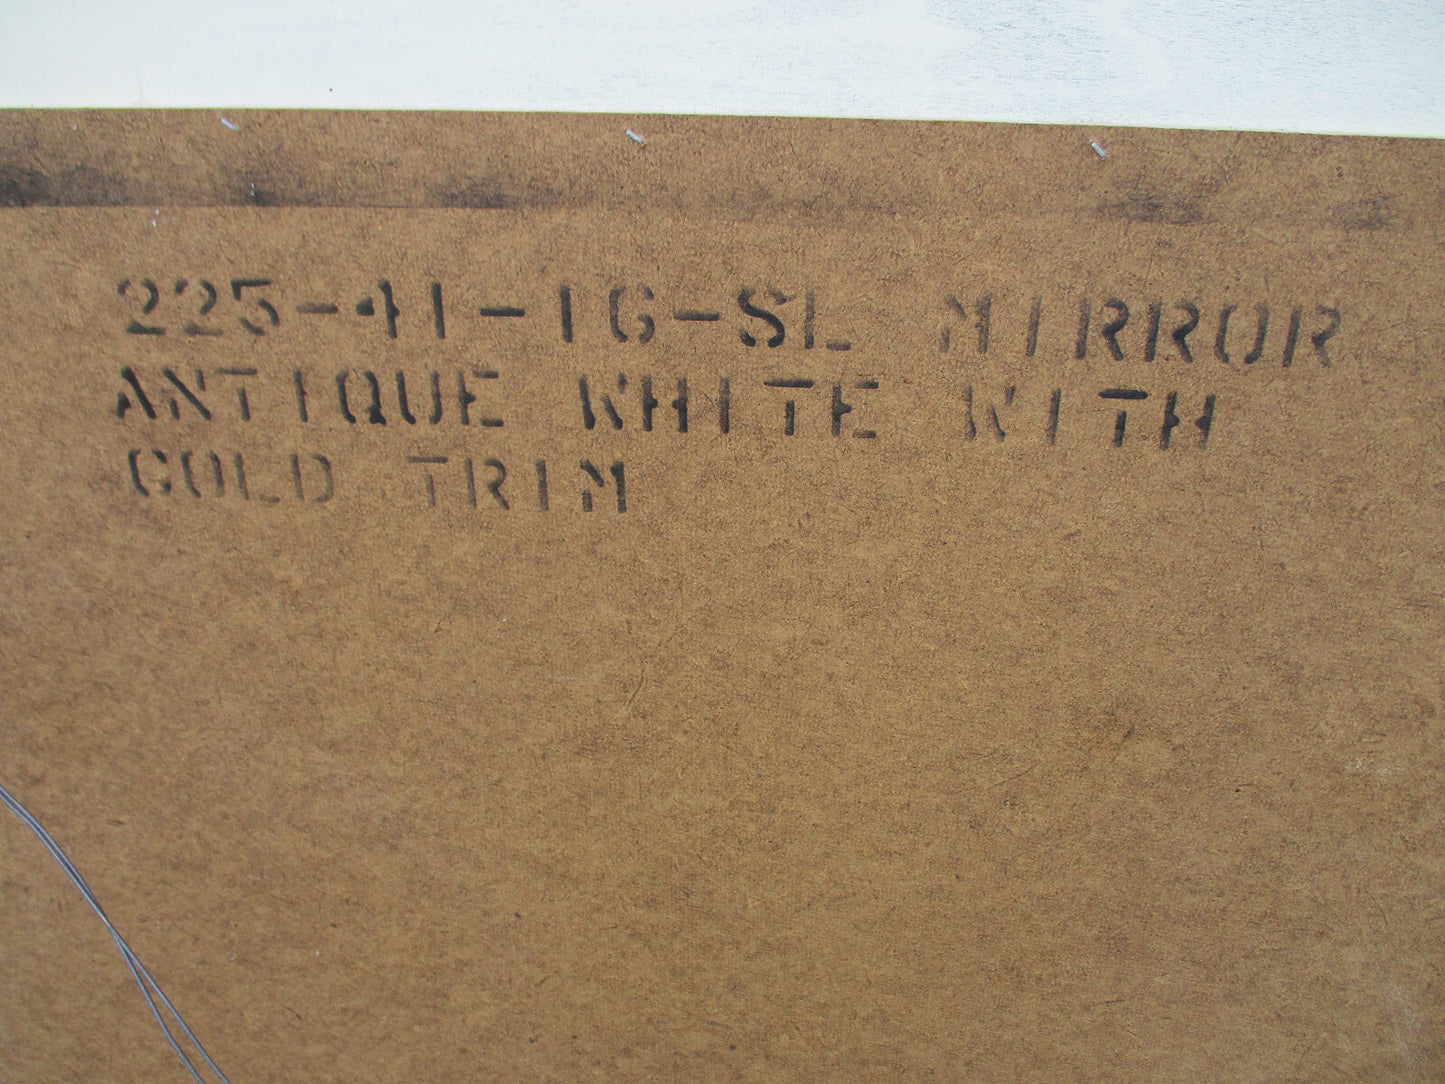 225-41-1G-SL MIRROR
ANTIQUE WHITE WITH
GOLD TRIM